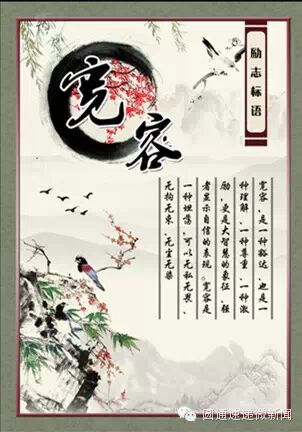 励志标语
宽容
宽容,是一种豁达、也是一
种理解、一种尊重、一种激
励,更是大智慧的象征、强
者显示自信的表现。宽容是
一种坦荡,可以无私无畏、
无拘无束、无尘无染
圆通速递微新闻